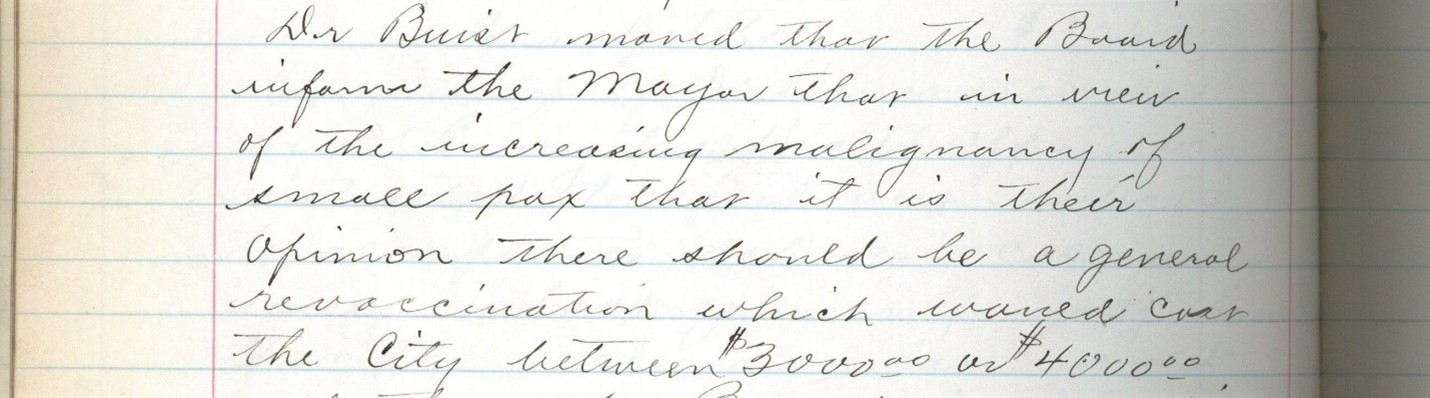 Dr Buist moved that the Board
inform the Mayor that in view
of the increasing malignancy of
small pox that it is their
opinion there should be a general
revaccination which would cost
the City between $3000.00 or $4000.00.